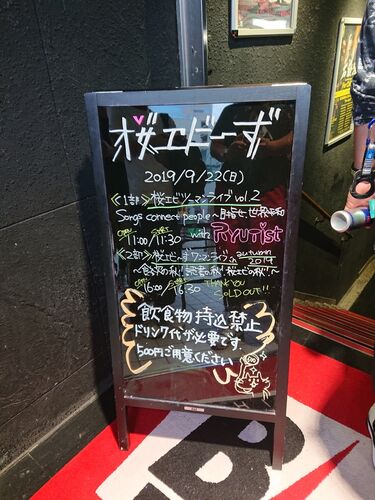 桜エビ~ず
2019/9/22(日)
<1部>桜エビツーマンライブ vol.2
Songs connect people~目指せ、世界平和
OPEN 11:00/START 11:30 with RYUTist
<2部>桜エビ~ずワンマンライブ autumn 2019
~食欲の秋!読書の秋!桜エビの秋!~
OPEN 16:00/START 16:30 THANK YOU SOLD OUT!!
飲食物持込禁止
ドリンク代が必要です
500円ご用意ください